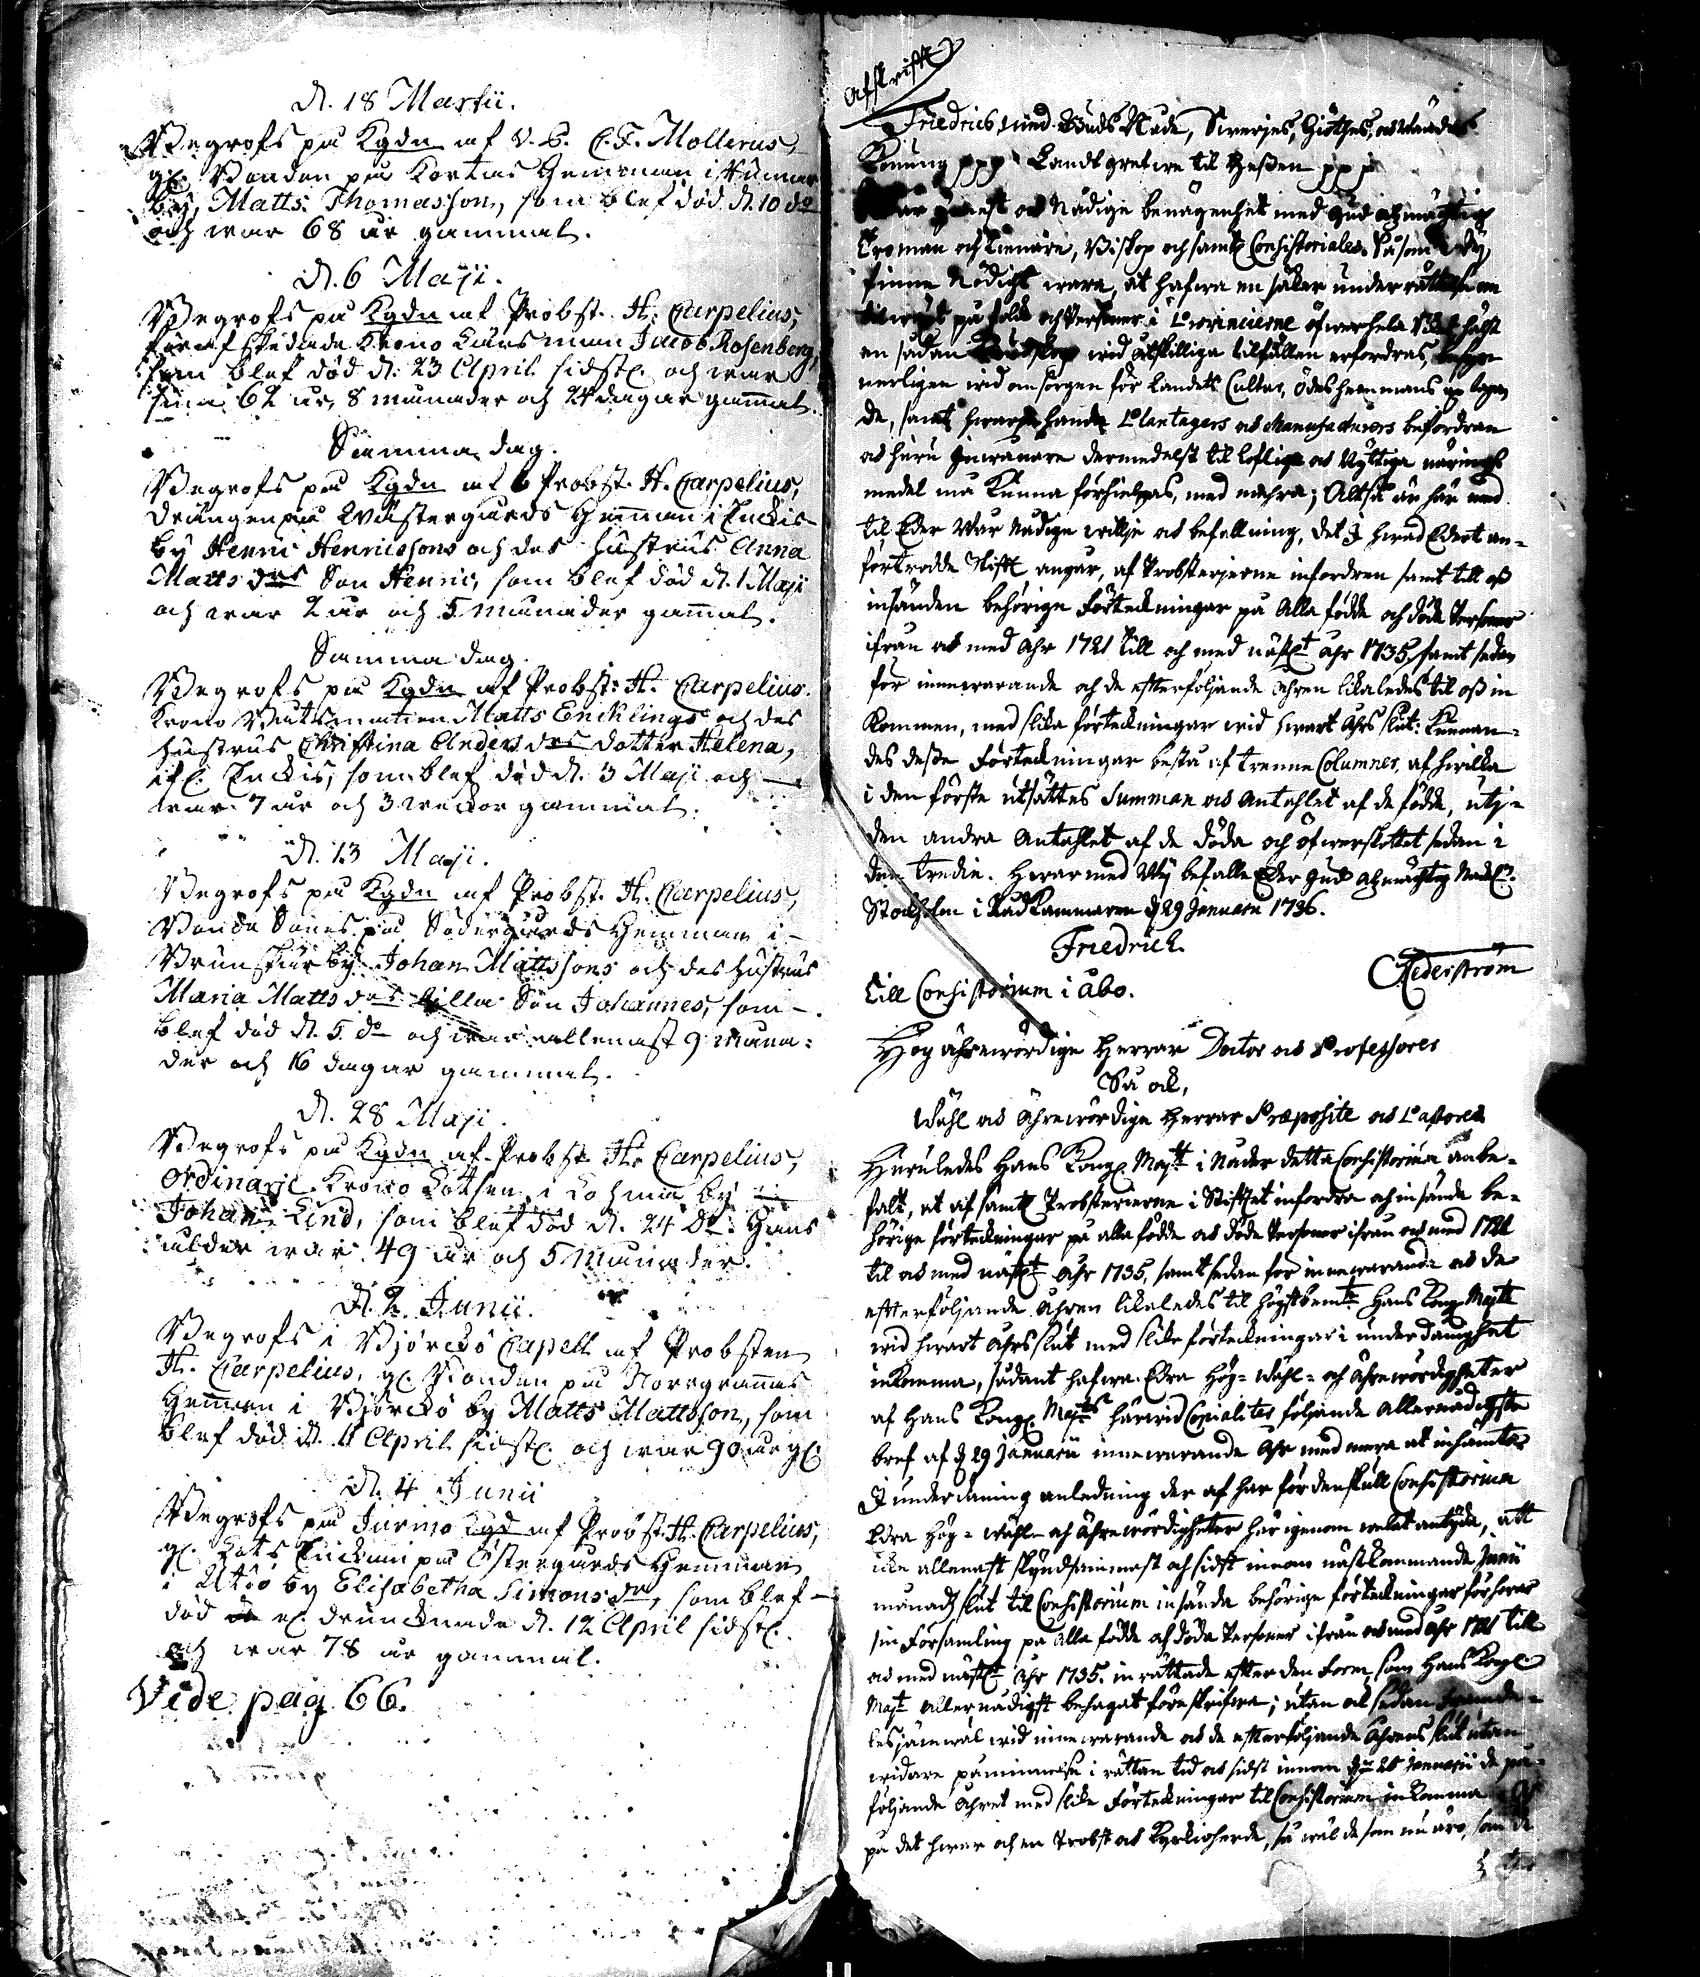 D. 18 Martii.
Begrofs på Kgdn af V. P. C. F. Mollerus,
gl. Bonden på Hemman i
by, Matts Thomasson, som blef död d. 10 do
och war 68 år gammal.
D. 6 Maji.
Begrofs på Kgdn af Probst. H. Carpelius,
Krono Länsman Jacob Rosenberg,
som blef död d. 23 April sidstl. och war
sina 62 år, 8 månader och 24 dagar gammal.
Samma dag.
Begrofs på Kgdn af Probst. H. Carpelius,
Drängen på Wästergårds Hemman i Inckis
by Henric Henricssons och des hustrus Anna
Matts drs Son Henric, som blef död d. 1 Maji
och war 2 år och 5 månader gammal.
Samma dag.
Begrofs på Kgdn af Probst: H. Carpelius.
Krono Båtsmannen Matts Encklings och des
hustrus Christina Anders drs dotter Helena,
ifl. Inckis, som blef död d. 3 Maji och
war 7 år och 3 weckor gammal.
D. 13 Maji.
Begrofs på Kgdn af Probst. H. Carpelius,
Bonde Sones på Södergårds Hemman i
by Johan Mattssons och des hustrus
Maria Matts drs lilla Son Johannes, som
blef död d. 5 do och war allenast 9 måna:
der och 16 dagar gammal.
D. 28 Maji.
Begrofs på Kgdn af Probst H. Carpelius,
Ordinarie Krono Båtsen i by
Johan Lind, som blef död d. 24 do. Hans
ålder war 49 år och 5 Månader.
D. 2. Junii.
Begrofs i Björckö Capell af Probsten
H. Carpelius, gl. Bonden på Norrgranas
Hemman i Björckö by Matts Mattsson, som
blef död d. April sidstl. och war 90 år gl.
D. 4 Junii
Begrofs på Jurmo Kgd af Probst. H. Carpelius,
gl. Enckan på Östergårds Hemman
i Utöö by Elisabetha Simons dr, som blef
död el. drunknade d. 12 April sidstl.
och war 78 år gammal.
Vide pag. 66.
Afskrifft
Friedrich, med Guds Nåde, Sweriges, Giöthes, och Wändes
Konung ppp Landtgrefwe til Heßen ppp
Wår ynnest och Nådige benägenhet med Gud alzmächtig
Troman och Tienare, Biskop och samtl. Consistoriales. Såsom Wij
finne Nödigt wara, at hafwa en säker underrättelse om
på folck och Personer i Provincierne öfwer hela Riket, hälst
en sådan wid åtskilliga tilfällen erfordras,
nerligen wid omsorgen för Landets Cultur, ödeshemmans uptagan
de, samt hwarjehanda Plantagers och Manufacturers befordran
och huru Inwånare dermedelst til loflige och Nyttiga närings
medel må kunna förhielpas, med mehra; Altså är här med
til Eder Wår Nådige willje och befallning, det I hwad Edert an-
förtrodde Stift angår, af Probsterierne infordren samt till oß
insänden behörige Förteckningar på Alla födde och döde Personer
ifrån och med Åhr 1721 till och med nästl. åhr 1735, samt sedan
för innewarande och de efterföljande åhren likaledes til oß in
kommen, med slika förteckningar wid hwart åhrs slut: Kunnan-
des deße Förteckningar bestå af trenne Columner, af hwilka
i den förste utsättes Summan och Antahlet af de födde, uti
den andra Antahlet af de döda och öfwerskottet sedan i
den tredie. Hwarmed Wij befalle Eder Gud alzmächtig Nådel.
Stockholm i RådKammaren d 29 Januarii 1736.
Friedrich.
Cederström
Till Consistorium i Åbo.
Hög ährewördige Herrar Doctor och Professorer
Så ock,
Wähl och ährewördige Herrar Præposite och Pastores
Huruledes Hans Kongl. Majtt i Nåder detta Consistorium anbe-
falt, at af samtl. Probsterierne i Stiftet infordra och insända be-
hörige förteckningar på alla födde och döde Personer ifrån och med 1721
til och med nästl. åhr 1735, samt sedan för innewarande och de
efterföljande åhren likaledes til högstbemte Hans Kongl. Majtt
wid hwart åhrs slut med slike förteckningar i underdånighet
inkomma, sådant hafwa Edra Hög- Wähl- och ährewördigheter
af Hans Kongl. Majtts härwid Copialiter följande allernådigste
bref af d 29 Januarii innewarande åhr med mera at inhämta.
I underdånig anledning der af har för denskull Consistorium
Edra Hög- wähl- och ährewördigheter här igenom welat antyda, att
icke allenast skyndsammast och sidst innom nästkommande Junii
månads slut til Consistorium insända behörige förteckningar för hwar
sin Församling på Alla födde och döda Personer ifrån och med åhr 1721 till
och med nästl. åhr 1735. inrättade efter den Form, som Hans Kongl.
Majt allernådigst behagat föreskrifwa; utan ock sedan
wid innewarande och de efterföljande åhrens slut utan
widare påminnelse i rättan tid och sidst innom d Januarii de på-
följande åhret med slike Förteckningar til Consistorium inkomma
på det hwar och en Probst och Kyrkioherde, så wäl de som nu äro, som de